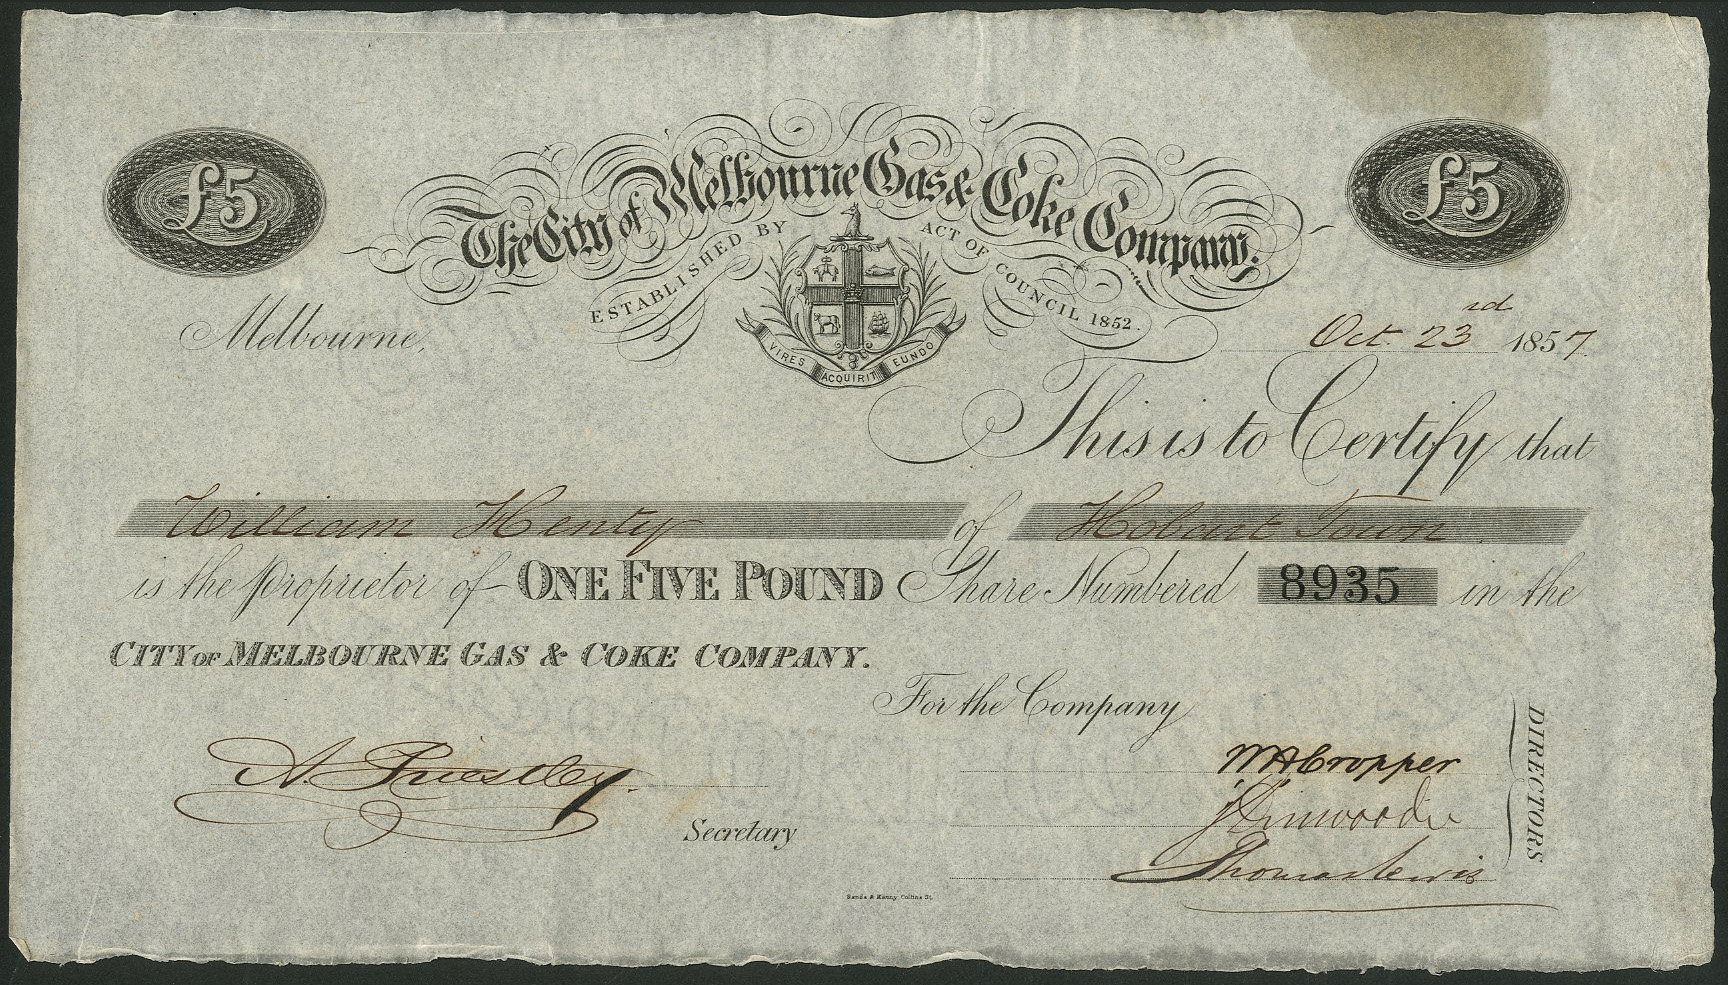 £5
£5
The City of Melbourne Gas & Coke Company.
ESTABLISHED BY ACT OF COUNCIL 1852.
VIRES ACQUIRIT EUNDO
Melbourne, Oct. 23rd 1857.
This is to Certify that
William Henty of Hobart Town.
is the Proprietor of ONE FIVE POUND Share Numbered 8935 in the
CITY OF MELBOURNE GAS & COKE COMPANY.
For the Company
A. Priestley.
Secretary
W H Cropper
Thomas Lewis
DIRECTORS
Sands & Kenny, Collins St.